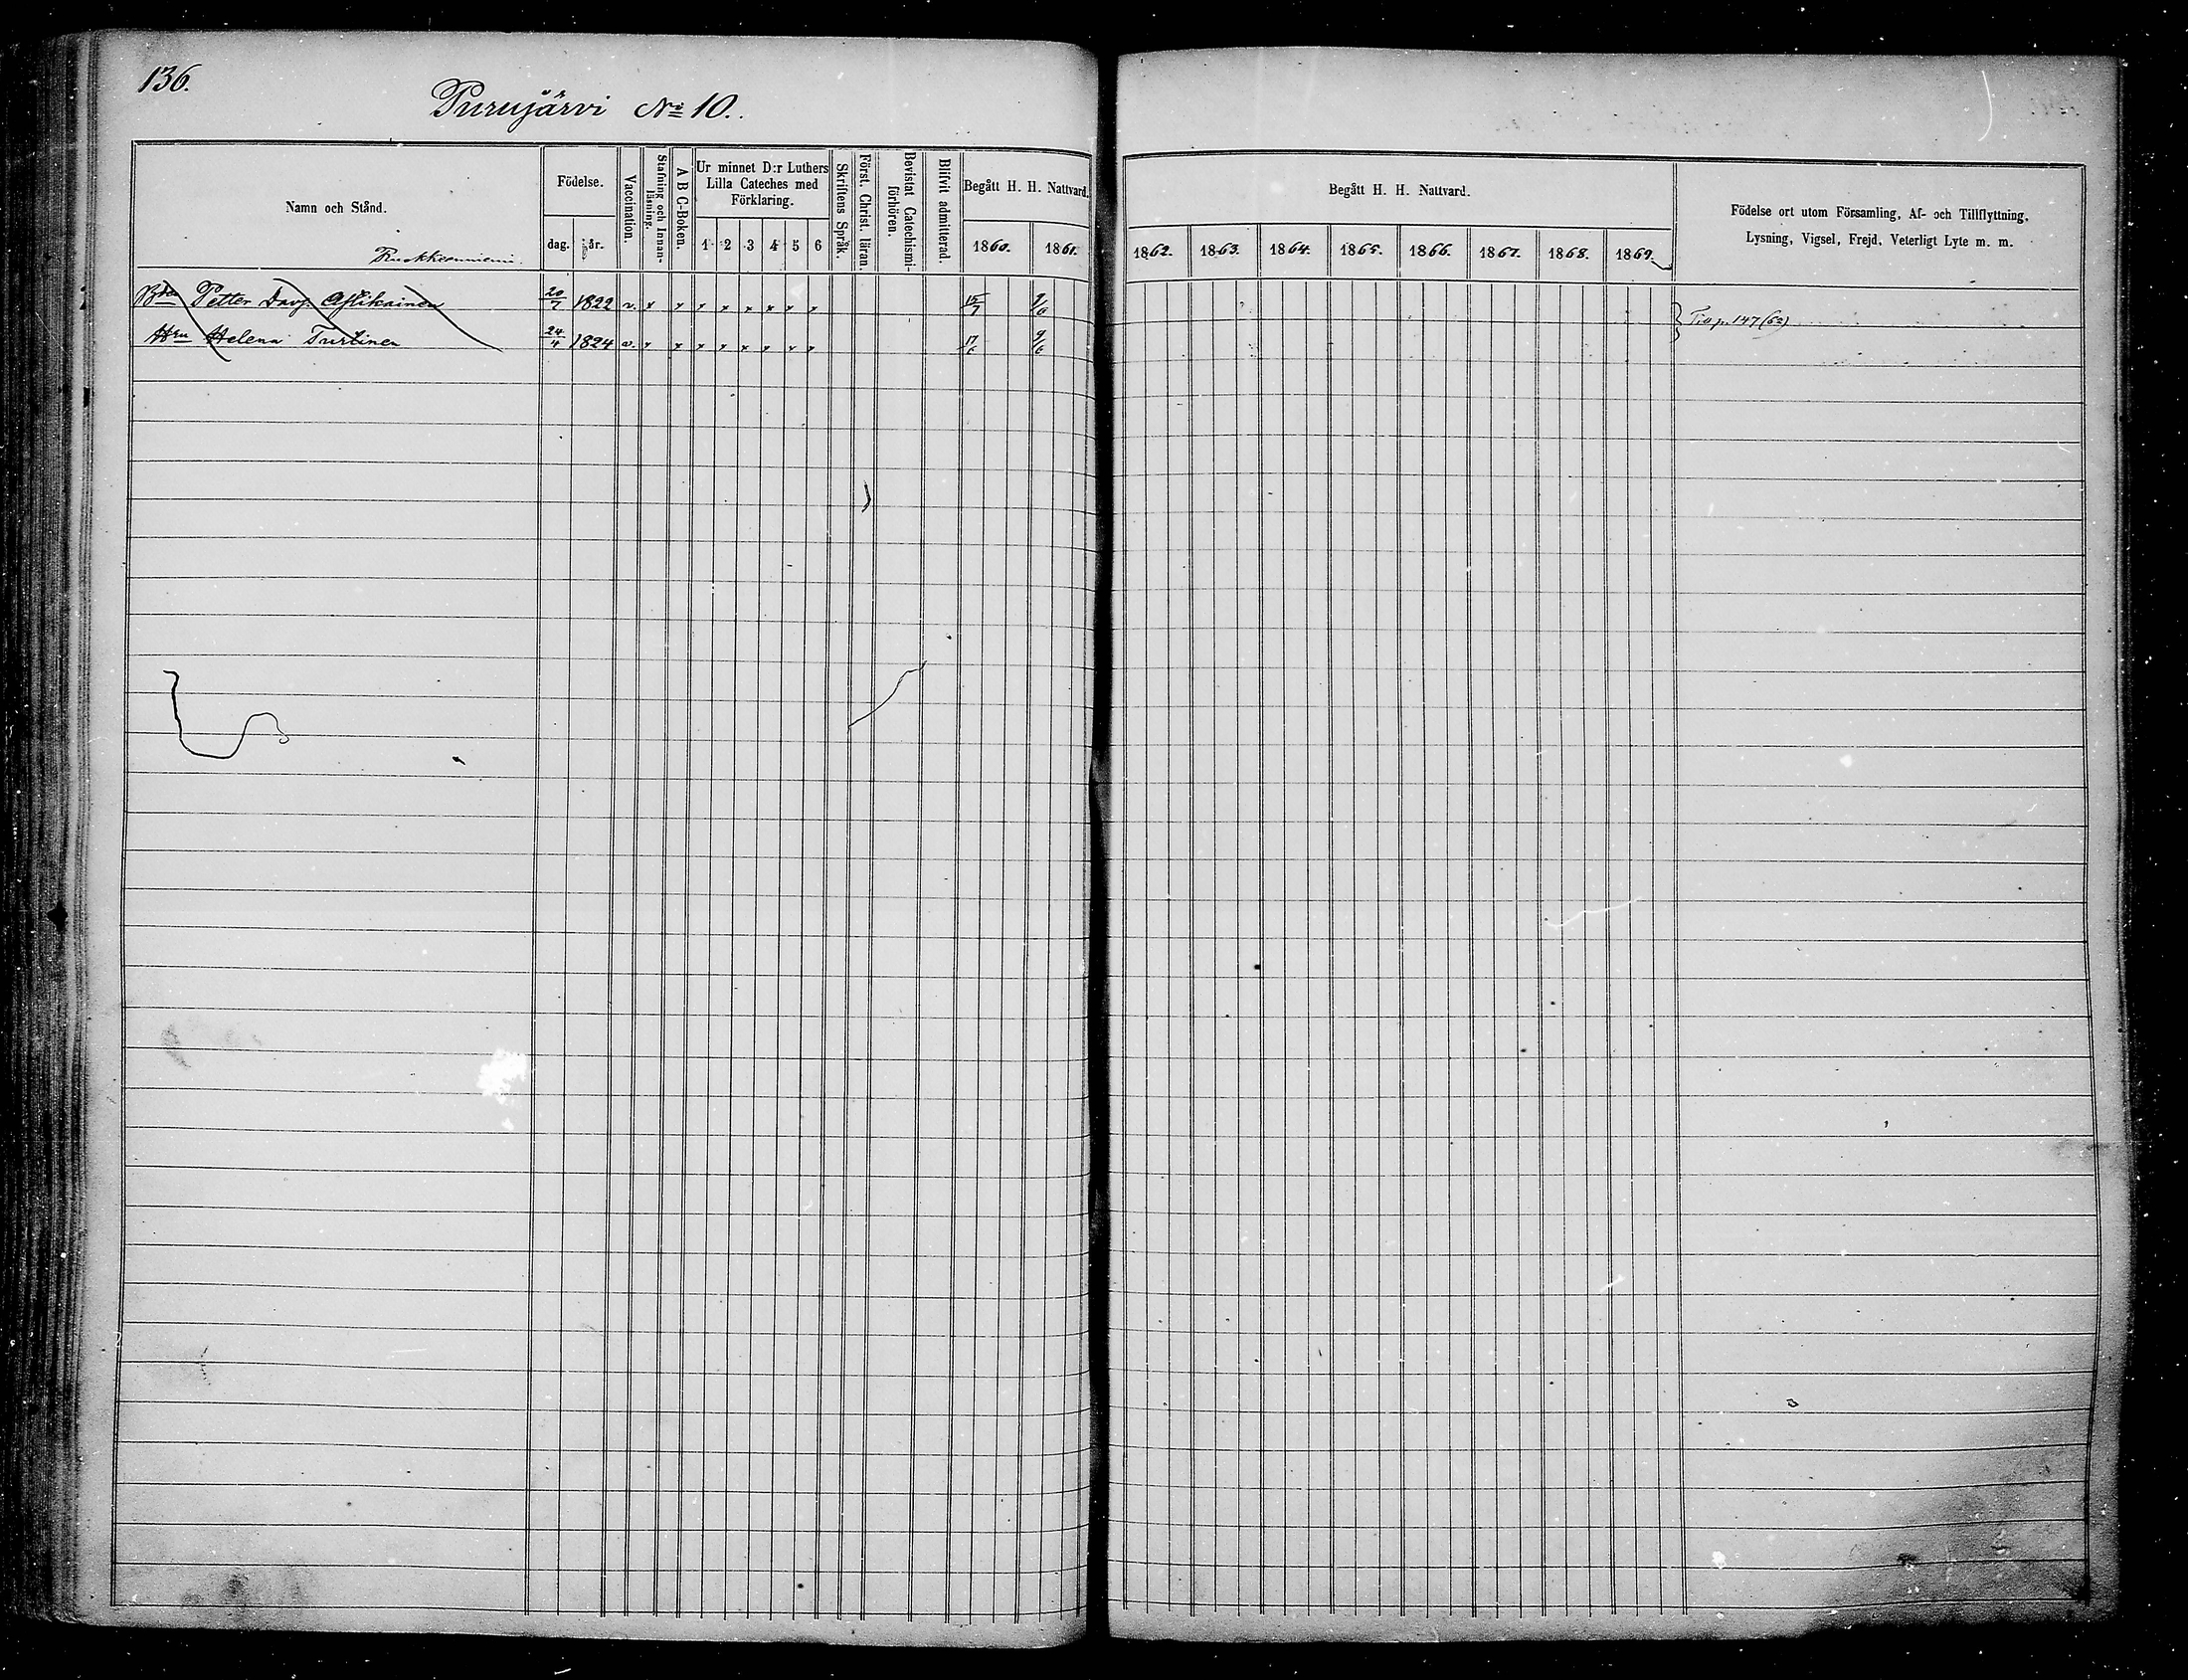 136.
Purujärvi No 10.
Namn och Stånd.
Födelse.
dag.
år.
Vaccination.
Stafning och Innan-
läsning.
A B C-Boken.
Ur minnet D:r Luthers
Lilla Cateches med
Förklaring.
1 2 3 4 5 6
Skriftens Språk.
Först. Christ. läran.
Bevistat Catechismi-
förhören.
Blifvit admitterad.
Begått H. H. Nattvard.
1860. 1861.
Begått H. H. Nattvard.
1862. 1863. 1864. 1865. 1866. 1867. 1868. 1869.
Födelse ort utom Församling, Af- och Tillflyttning,
Lysning, Vigsel, Frejd, Veterligt Lyte m. m.
Petter 20/7 1822 v. x x x x x x x x 15/7
Hru Helena Turtinen 24/4 1824 v. x x x x x x x x 17/6 9/6
p. 147 (62)